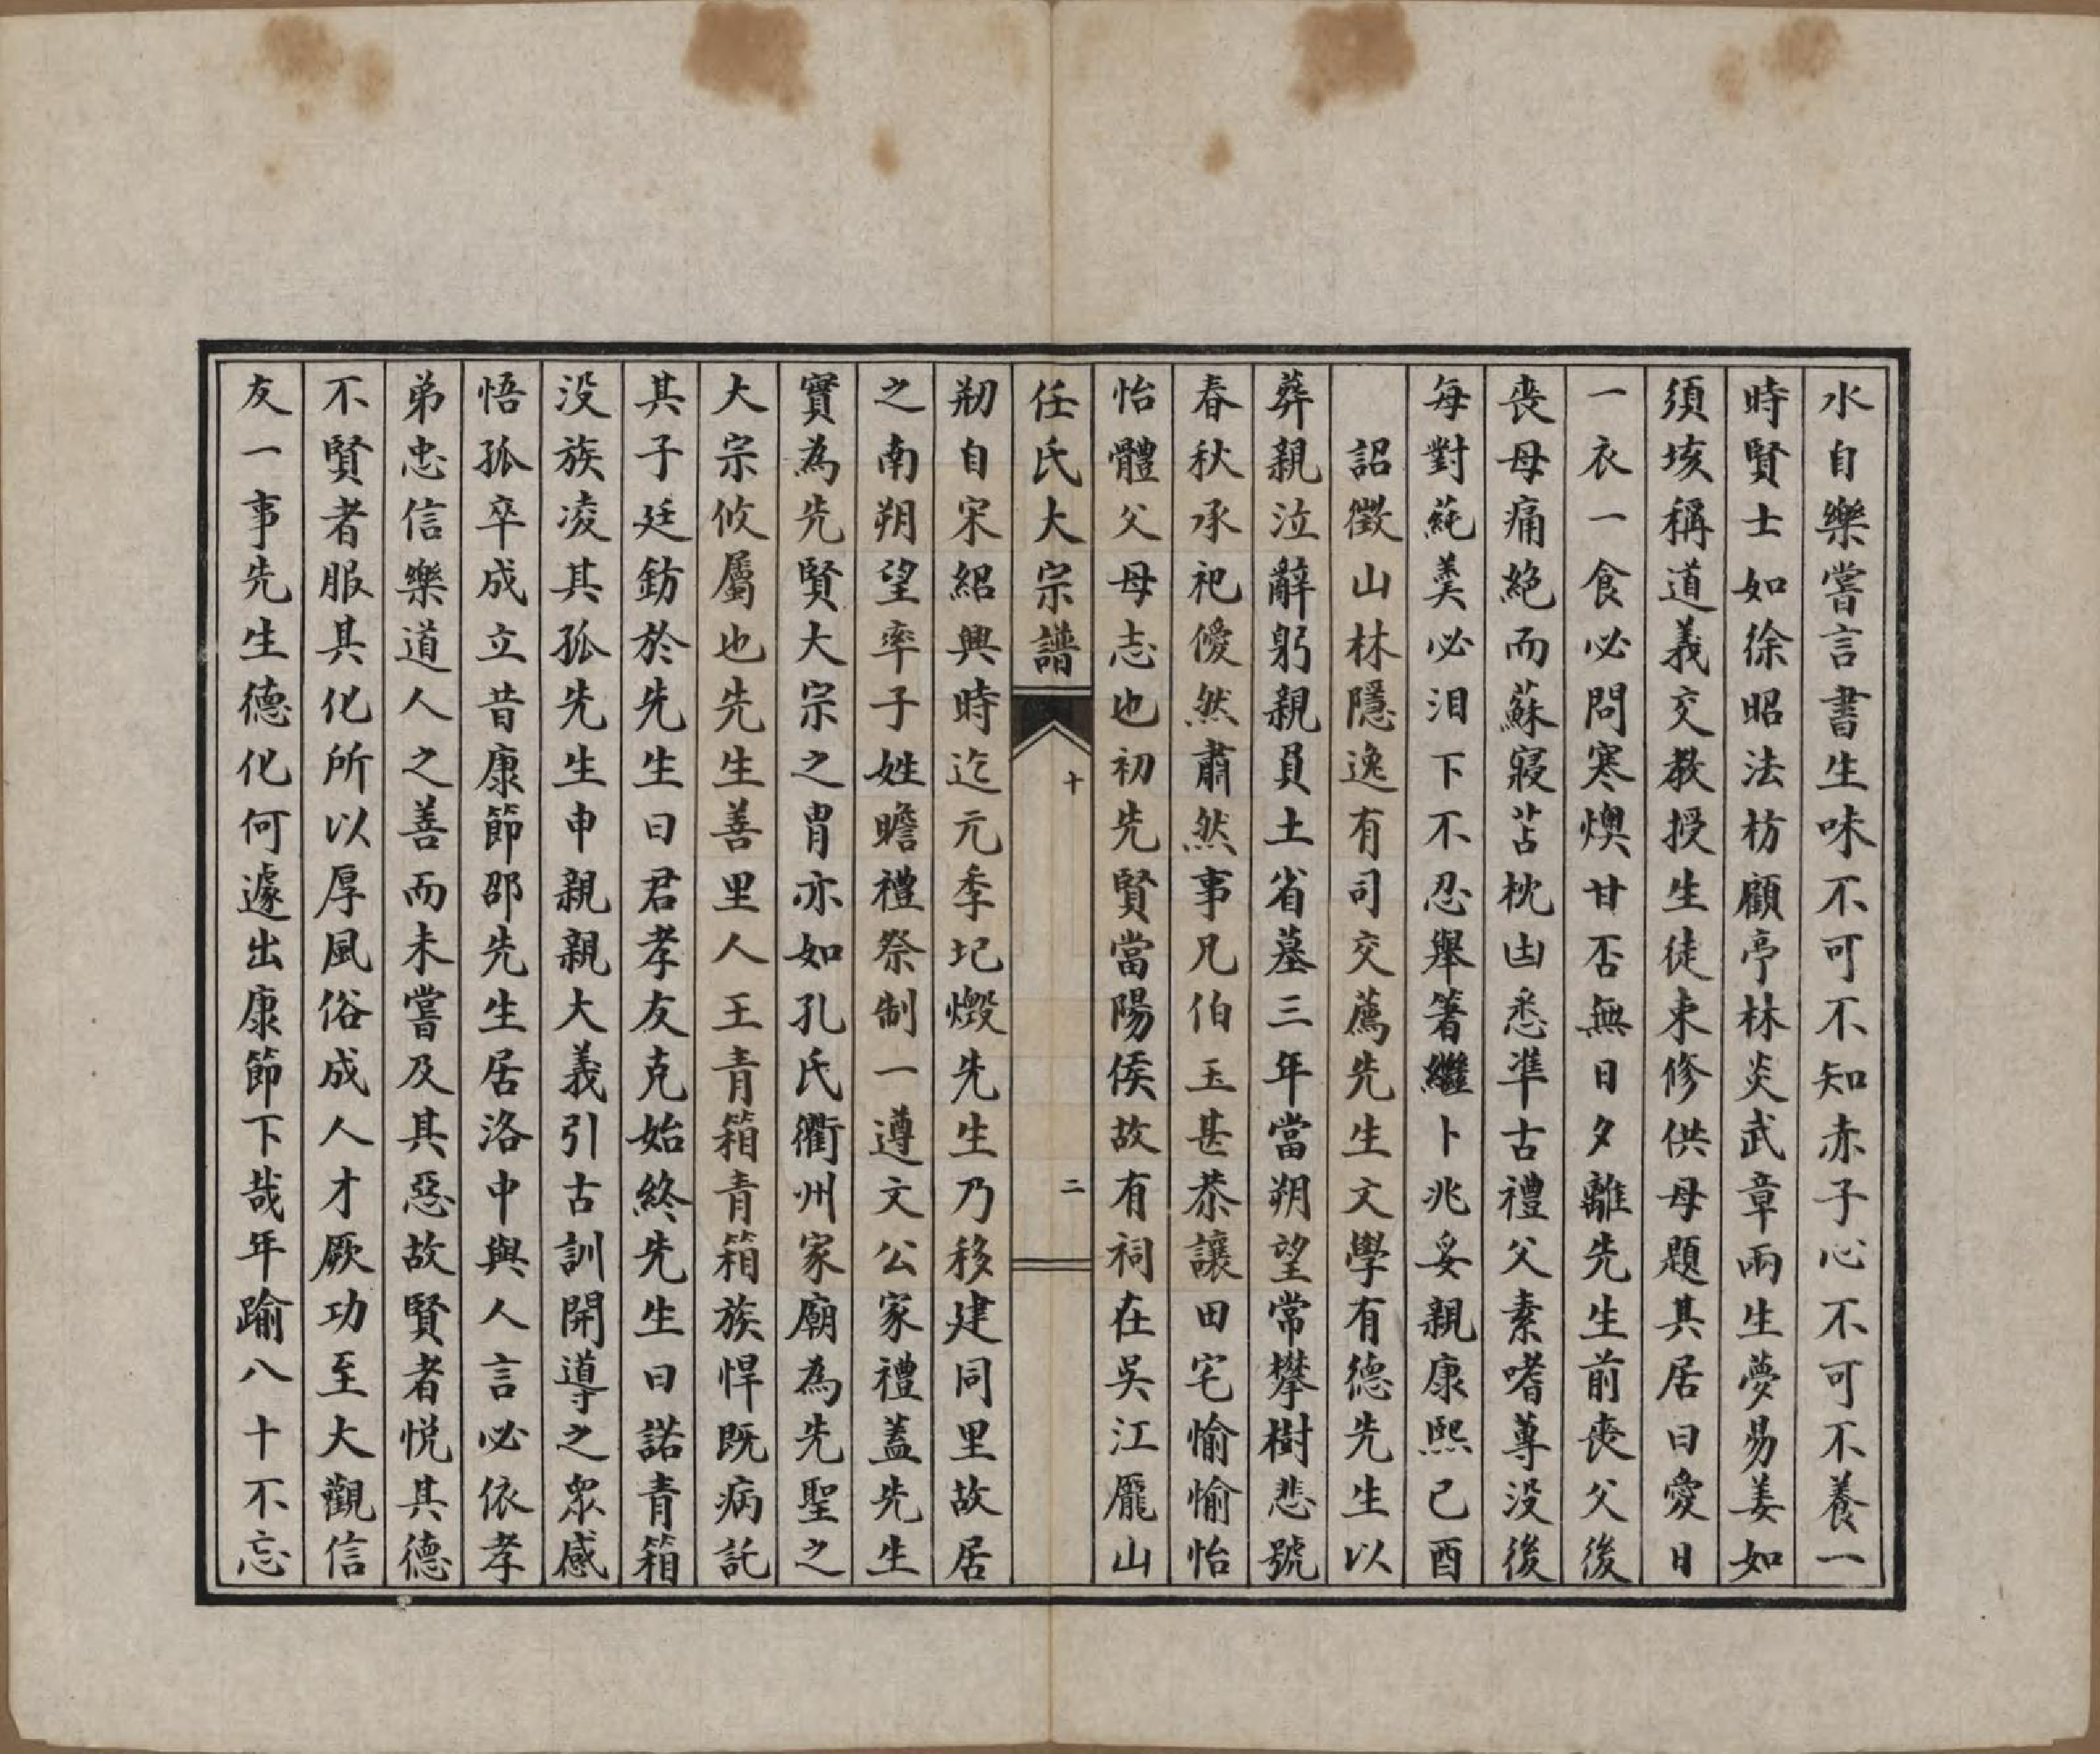 水自樂嘗言書生味不可不知赤子心不可不養一
時賢士如徐昭法枋顧亭林炎武章兩生夢易姜如
須垓稱道義交教授生徒束修供母題其居曰愛日
一衣一食必問寒燠甘否無日夕離先生前喪父後
喪母痛絶而蘇寢苫枕凷悉準古禮父素嗜蓴没後
每對蒓羹必泪下不忍舉箸繼卜兆妥親康熙己酉
詔徵山林隱逸有司交薦先生文學有德先生以
葬親泣辭躬親負土省墓三年當朔望常攀樹悲號
春秋承祀僾然肅然事兄伯玉甚恭讓田宅愉愉怡
怡體父母志也初先賢當陽侯故有祠在吳江龎山
任氏大宗譜
十
二
剏自宋紹興時迄元季圮燬先生乃移建同里故居
之南朔望率子姓瞻禮祭制一遵文公家禮蓋先生
實為先賢大宗之胄亦如孔氏衢州家廟為先聖之
大宗攸屬也先生善里人王青箱青箱族悍既病託
其子廷鈁於先生曰君孝友克始終先生曰諾青箱
没族凌其孤先生申親親大義引古訓開導之眾感
悟孤卒成立昔康節邵先生居洛中與人言必依孝
弟忠信樂道人之善而未嘗及其惡故賢者悦其德
不賢者服其化所以厚風俗成人才厥功至大觀信
友一事先生德化何遽出康節下哉年踰八十不忘